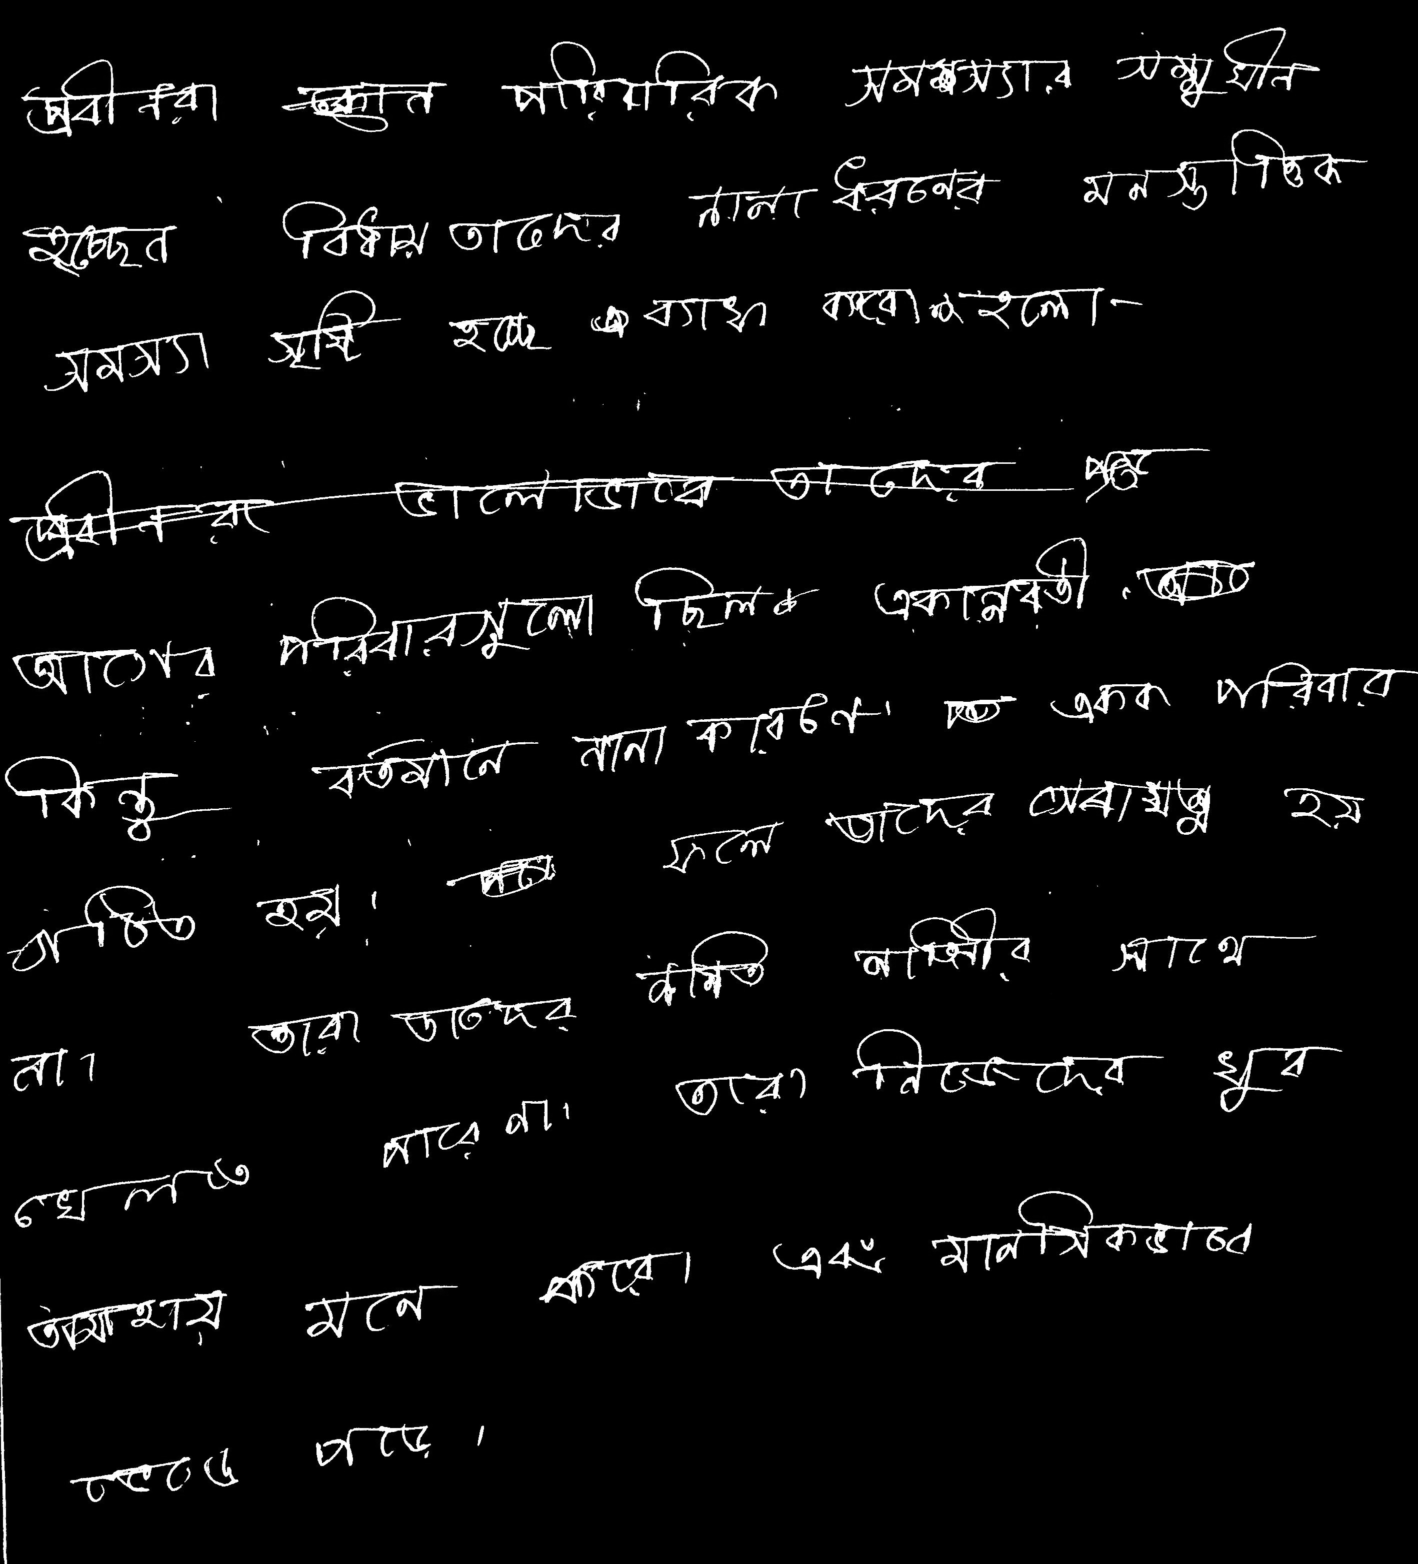 প্রবীনরা পারিবারিক সমস্যার সম্মুখীন
হচ্ছেন বিধায় তাদের নানা ধরনের মনস্তাত্তিক
সমস্যা সৃষ্টি হচ্ছে ব্যাখা করা হলো-
প্রবীনরা ভালোভাবে তাদের
আগের পরিবারগুলো ছিল একান্নবর্তী
কিন্তু বর্তমানে নানা কারণে একক পরিবার
গঠিত হয়। ফলে তাদের সেবাযত্ন হয়
না। তারা তাদের নাতির সাথে
খেলতে পারে না। তারা নিজেদের খুব
অসহায় মনে করে। এবং মানসিকভাবে
ভেঙে পড়ে।